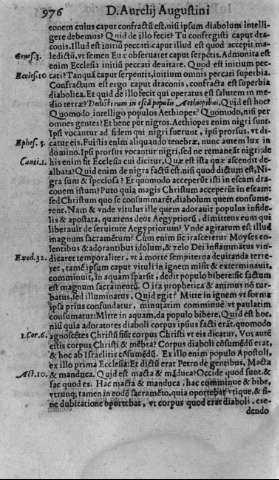 976 D. Aurelij Augustini
eonem cuius caput confractũ est. nisi ipsum diabolum intelli
gere debemus? Quid de illo fecit? Tu confregisti caput dra-
conis. Illud est initiũ peccati. caput illud est quod accepit ma
Genes. 3. ledictũ, vt semen Euæ obseruaret caput serpentis. Admonita est
enim Ecclesia initiũ peccati deuitare. Quod est initium pec
Eccli. 10 cati? Tanquã caput serpentis, initium omnis peccati superbia.
Confractum est ergo caput draconis, confracta est superbia
diabolica. Et quid de illo fecit qui operatus est salutem in me-
dio terræ? Dedisti eum in escã populis Aethiopibus. Quid est hoc?
Quomodo intelligo populos Aethiopes? Quomodo, nisi per
omnes gentes? Et bene per nigros. Aethiopes enim nigri sunt.
Ipsi vocantur ad fidem qui nigri fuerunt, ipsi prorsus, vt di-
Ephes. 5. catur eis, Fuistis enim aliquando tenebræ, nunc autem lux in
domino. Ipsi prorsus vocantur nigri, sed ne remaneant nigri: de
Canti. 1. his enim fit Ecclesia cui dicitur, Quæ est ista quæ ascendit de-
albata? Quid enim de nigra factũ est, nisi quod dictum est, Ni-
gra sum & speciosa? Et quomodo acceperunt isti in escam dra-
conem istum? Puto quia magis Christum acceperũt in escam:
sed Christum quo se consummarẽt, diabolum quem consume-
rent. Nam & vnde vitulus ille quem adorauit populus infide-
lis & apostata, quærens deos Aegyptiorũ, dimittens eum qui
liberauit de seruitute Aegyptiorum? Vnde agitatum est illud
magnum sacramẽtum? Cum enim sic irasceretur Moyses co-
lentibus & adorantibus idolum, & zelo Dei inflammatus vin-
Exod. 32. dicaret temporaliter, vt à morte sempiterna deuitanda terre-
ret, tamẽ ipsum caput vituli in ignem misit & exterminauit,
comminuit, in aquam sparsit, dedit populo bibere: sic factum
est magnum sacramentũ. O ira prophetica & animus nõ tur-
batus, sed illuminatus. Quid egit? Mitte in ignem vt forma
ipsa prius confundatur, minutatim comminue vt paulatim
consumatur: Mitte in aquam, da populo bibere. Quid est hoc,
nisi quia adoratores diaboli corpus ipsius facti erãt, quomodo
1. Cor. 6. agnoscẽtes Christũ fiũt corpus Christi vt eis dicatur, Vos autẽ
estis corpus Christi & mẽbra? Corpus diaboli cõsumẽdũ erat,
& hoc ab Israëlitis cõsumẽdũ. Ex illo enim populo Apostoli,
ex illo prima Ecclesia: Et dictũ erat Petro de gentibus, Macta
Act. 10. & manduca. Quid est macta & mãduca? Occide quod sunt, &
fac quod es. Hac macta & manduca, hac comminue & bibe,
vtrunq; tamen in eodẽ sacramẽto, quia oportebat vtique, & si-
ne dubitatione oportebat, vt corpus quod erat diaboli, cre-
dendo